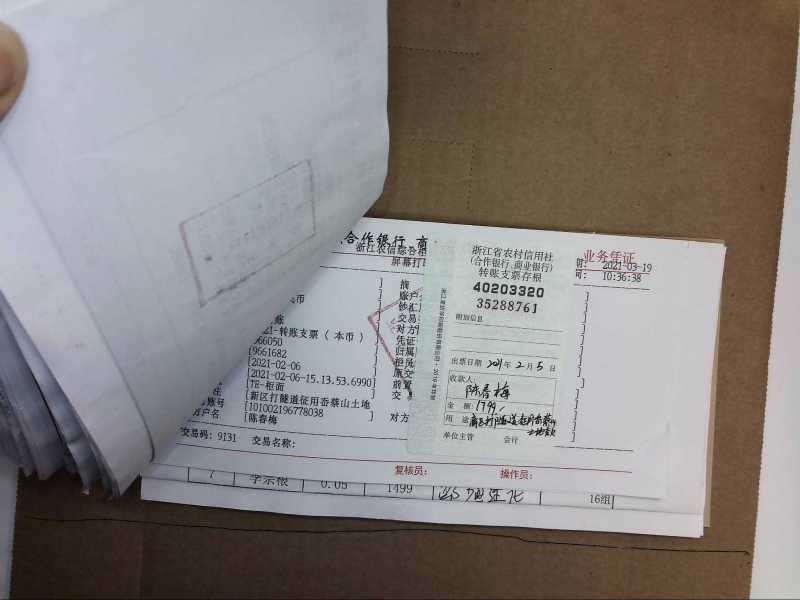 合作银行 商
浙江农信综合柜
屏幕打
业务凭证
2021-03-19
10:36:38
摘
账户
钞汇
交易
对方
凭证
归属
柜员
原交
前置
交易
-转账支票(本币)
966050
9661682
2021-02-06
2021-02-06-15.13.53.6990
TE-柜面
新区打隧道征用岙蔡山土地
账号 101002196778038
户名 陈春梅
对方
交易码: 9131 交易名称:
复核员: 操作员:
浙江省农村信用社
(合作银行、商业银行)
转账支票存根
40203320
35288761
附加信息
出票日期 2021年 2月 5日
收款人:
陈春梅
金 额: 1799
用 途
单位主管 会计
7 李宗根 0.05 1499
16组